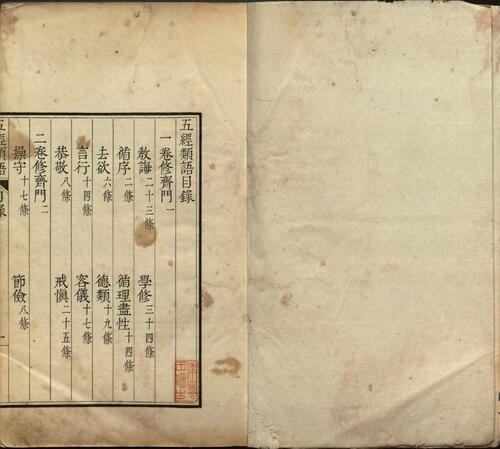 五經類語目錄
一卷修齊門一
敎誨二十三條 學修三十四條
循序二條 循理盡性十四條
去欲六條 德類十九條
言行十四條 容儀十七條
恭敬八條 戒愼二十五條
二卷修齊門二
操守十七條 節儉八條
五經類語 目錄 一